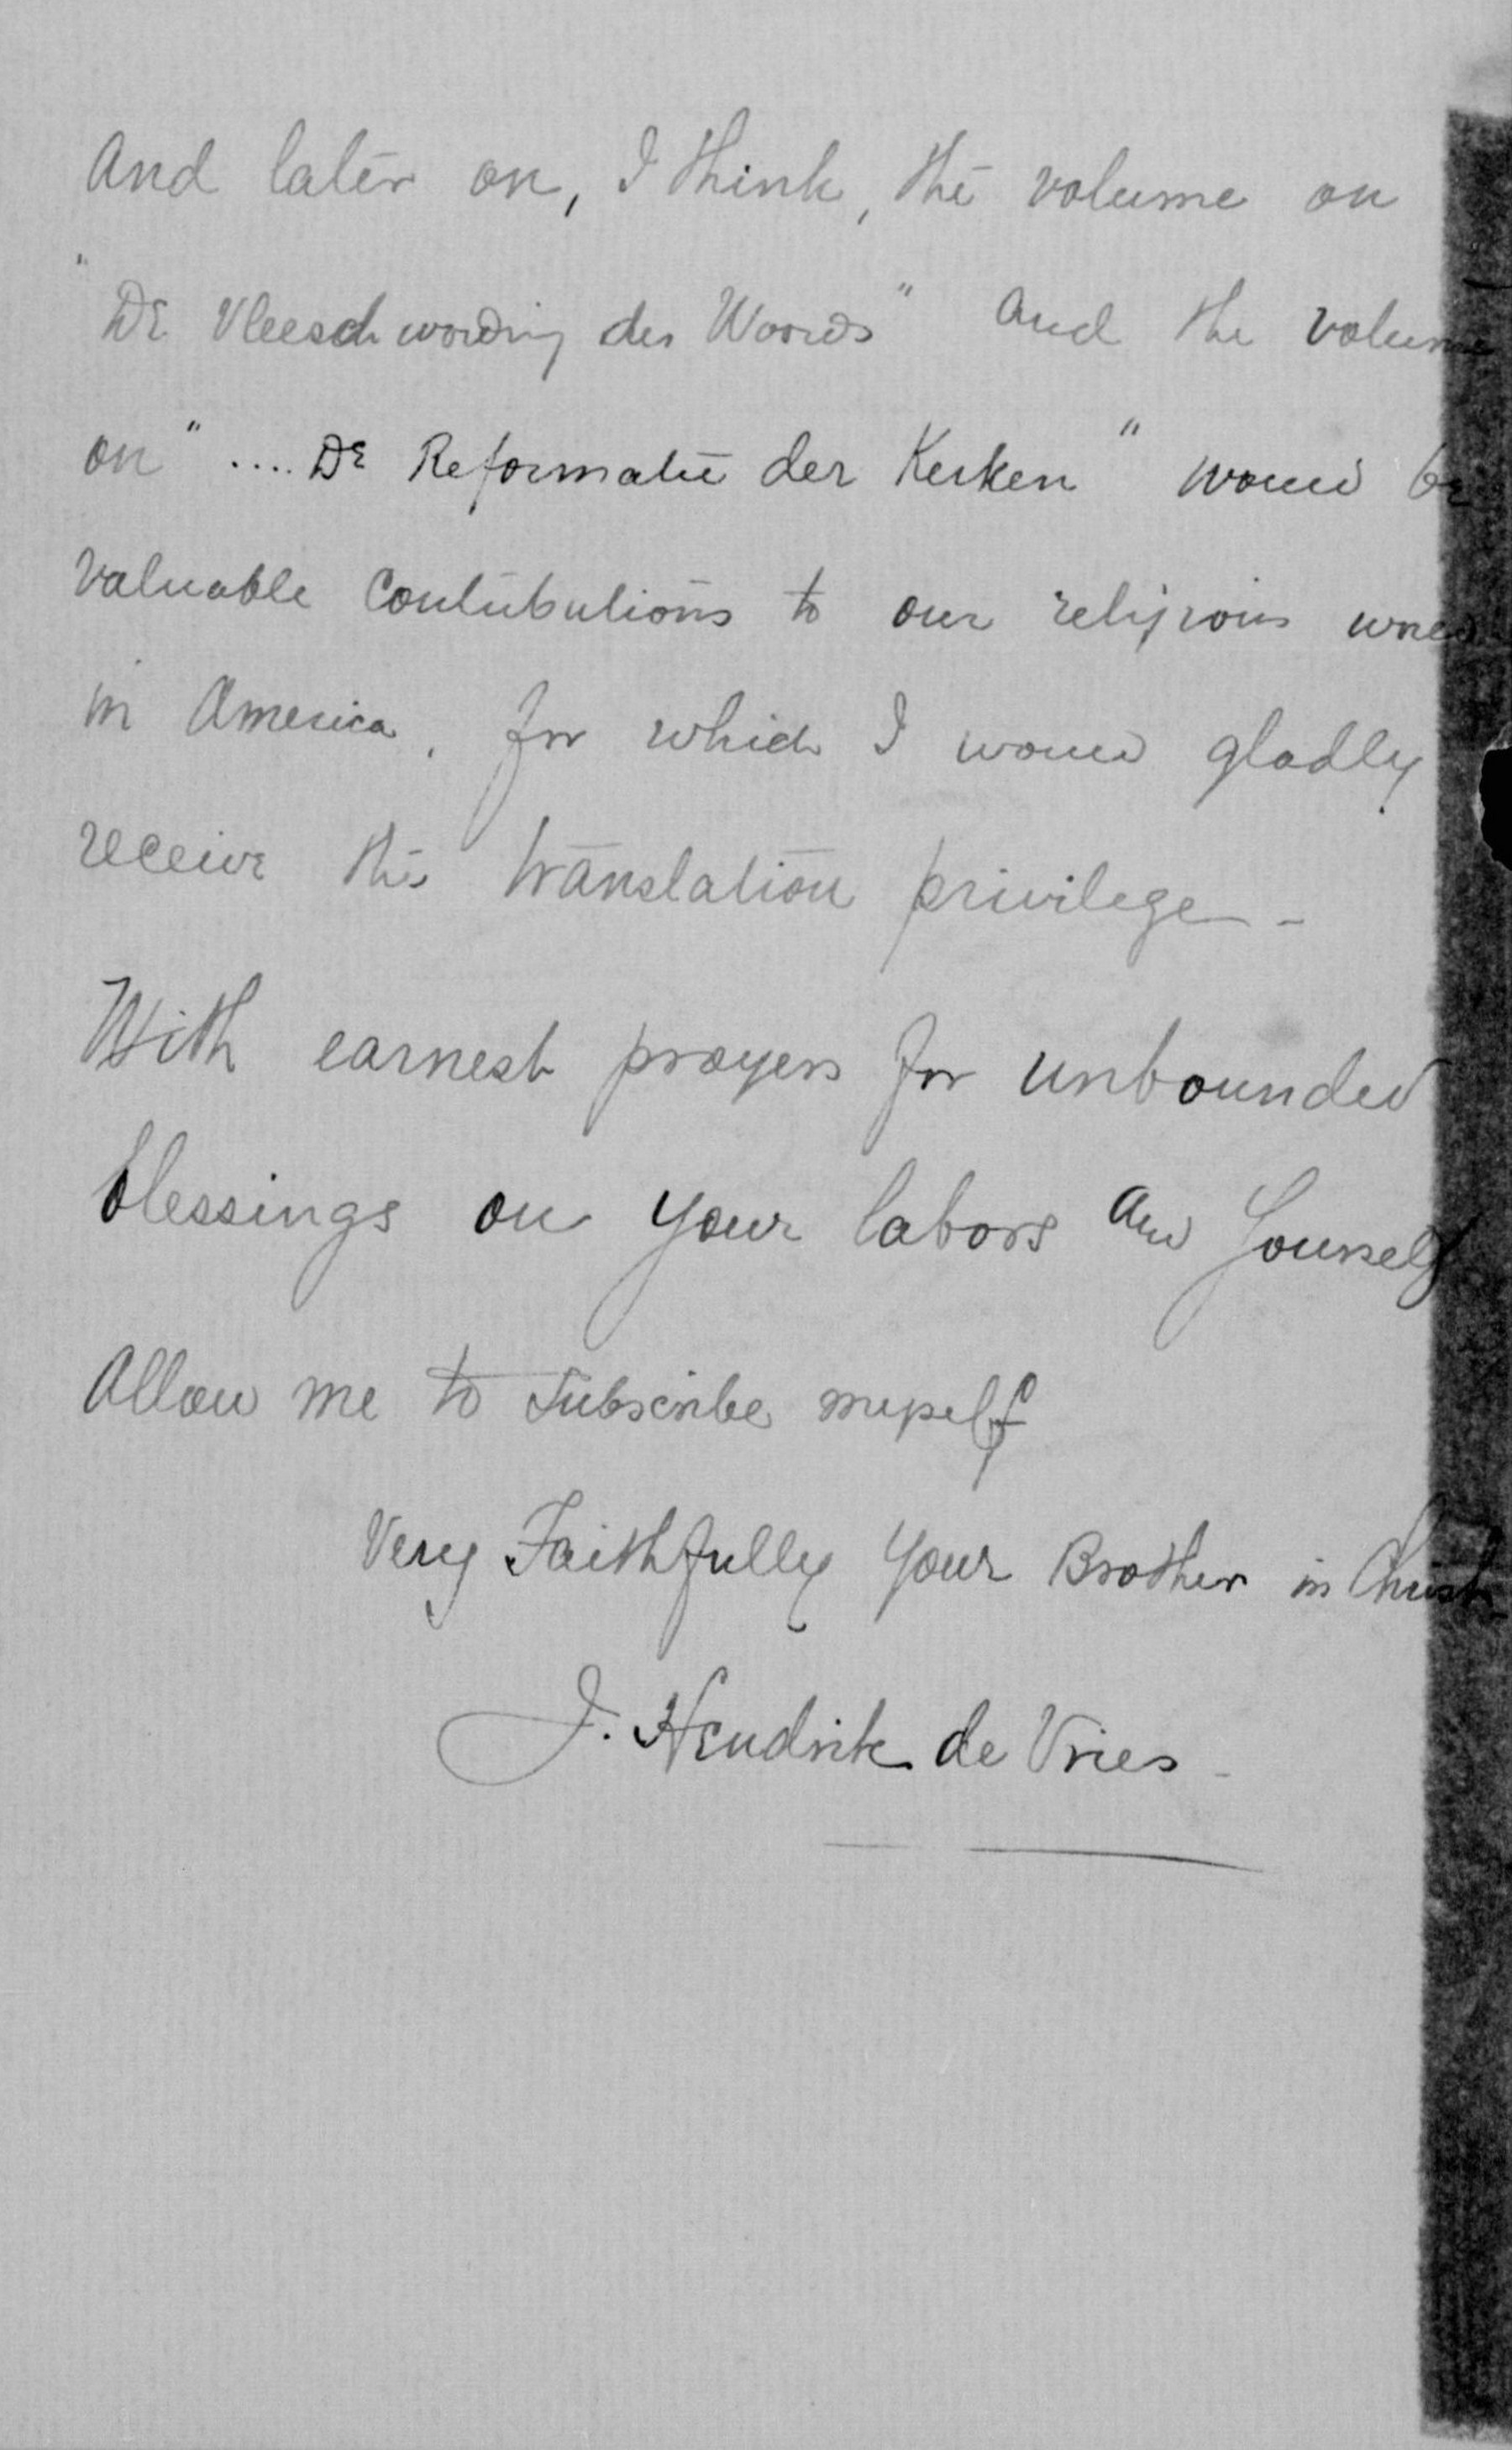 And later on, I think, the volume on
"De Vleeschwording des Woords" and the volume
on ".... De Reformatie der Kerken" would be
valuable contributions to our religious world
in America, for which I would gladly
receive the translation privilege -
With earnest prayers for unbounded
blessings on your labors and yourself
Allow me to subscribe myself
Very Faithfully Your Brother in Christ
J. Hendrik de Vries -